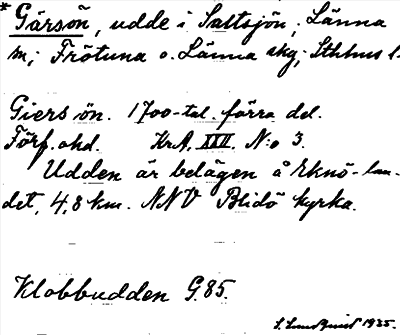 * Gärsön, udde i Saltsjön; Länna
m; Frötuna o. Länna skg; Sthlms l.
Giers ön. 1700-tal. förra del.
Förf. okd. Kr.A. XVII. N:o 3.
Udden är belägen å Eknö-lan-
det, 4,8 km. NNV Blidö kyrka.
Klobbudden G.85.
S. Lundquist 1935.